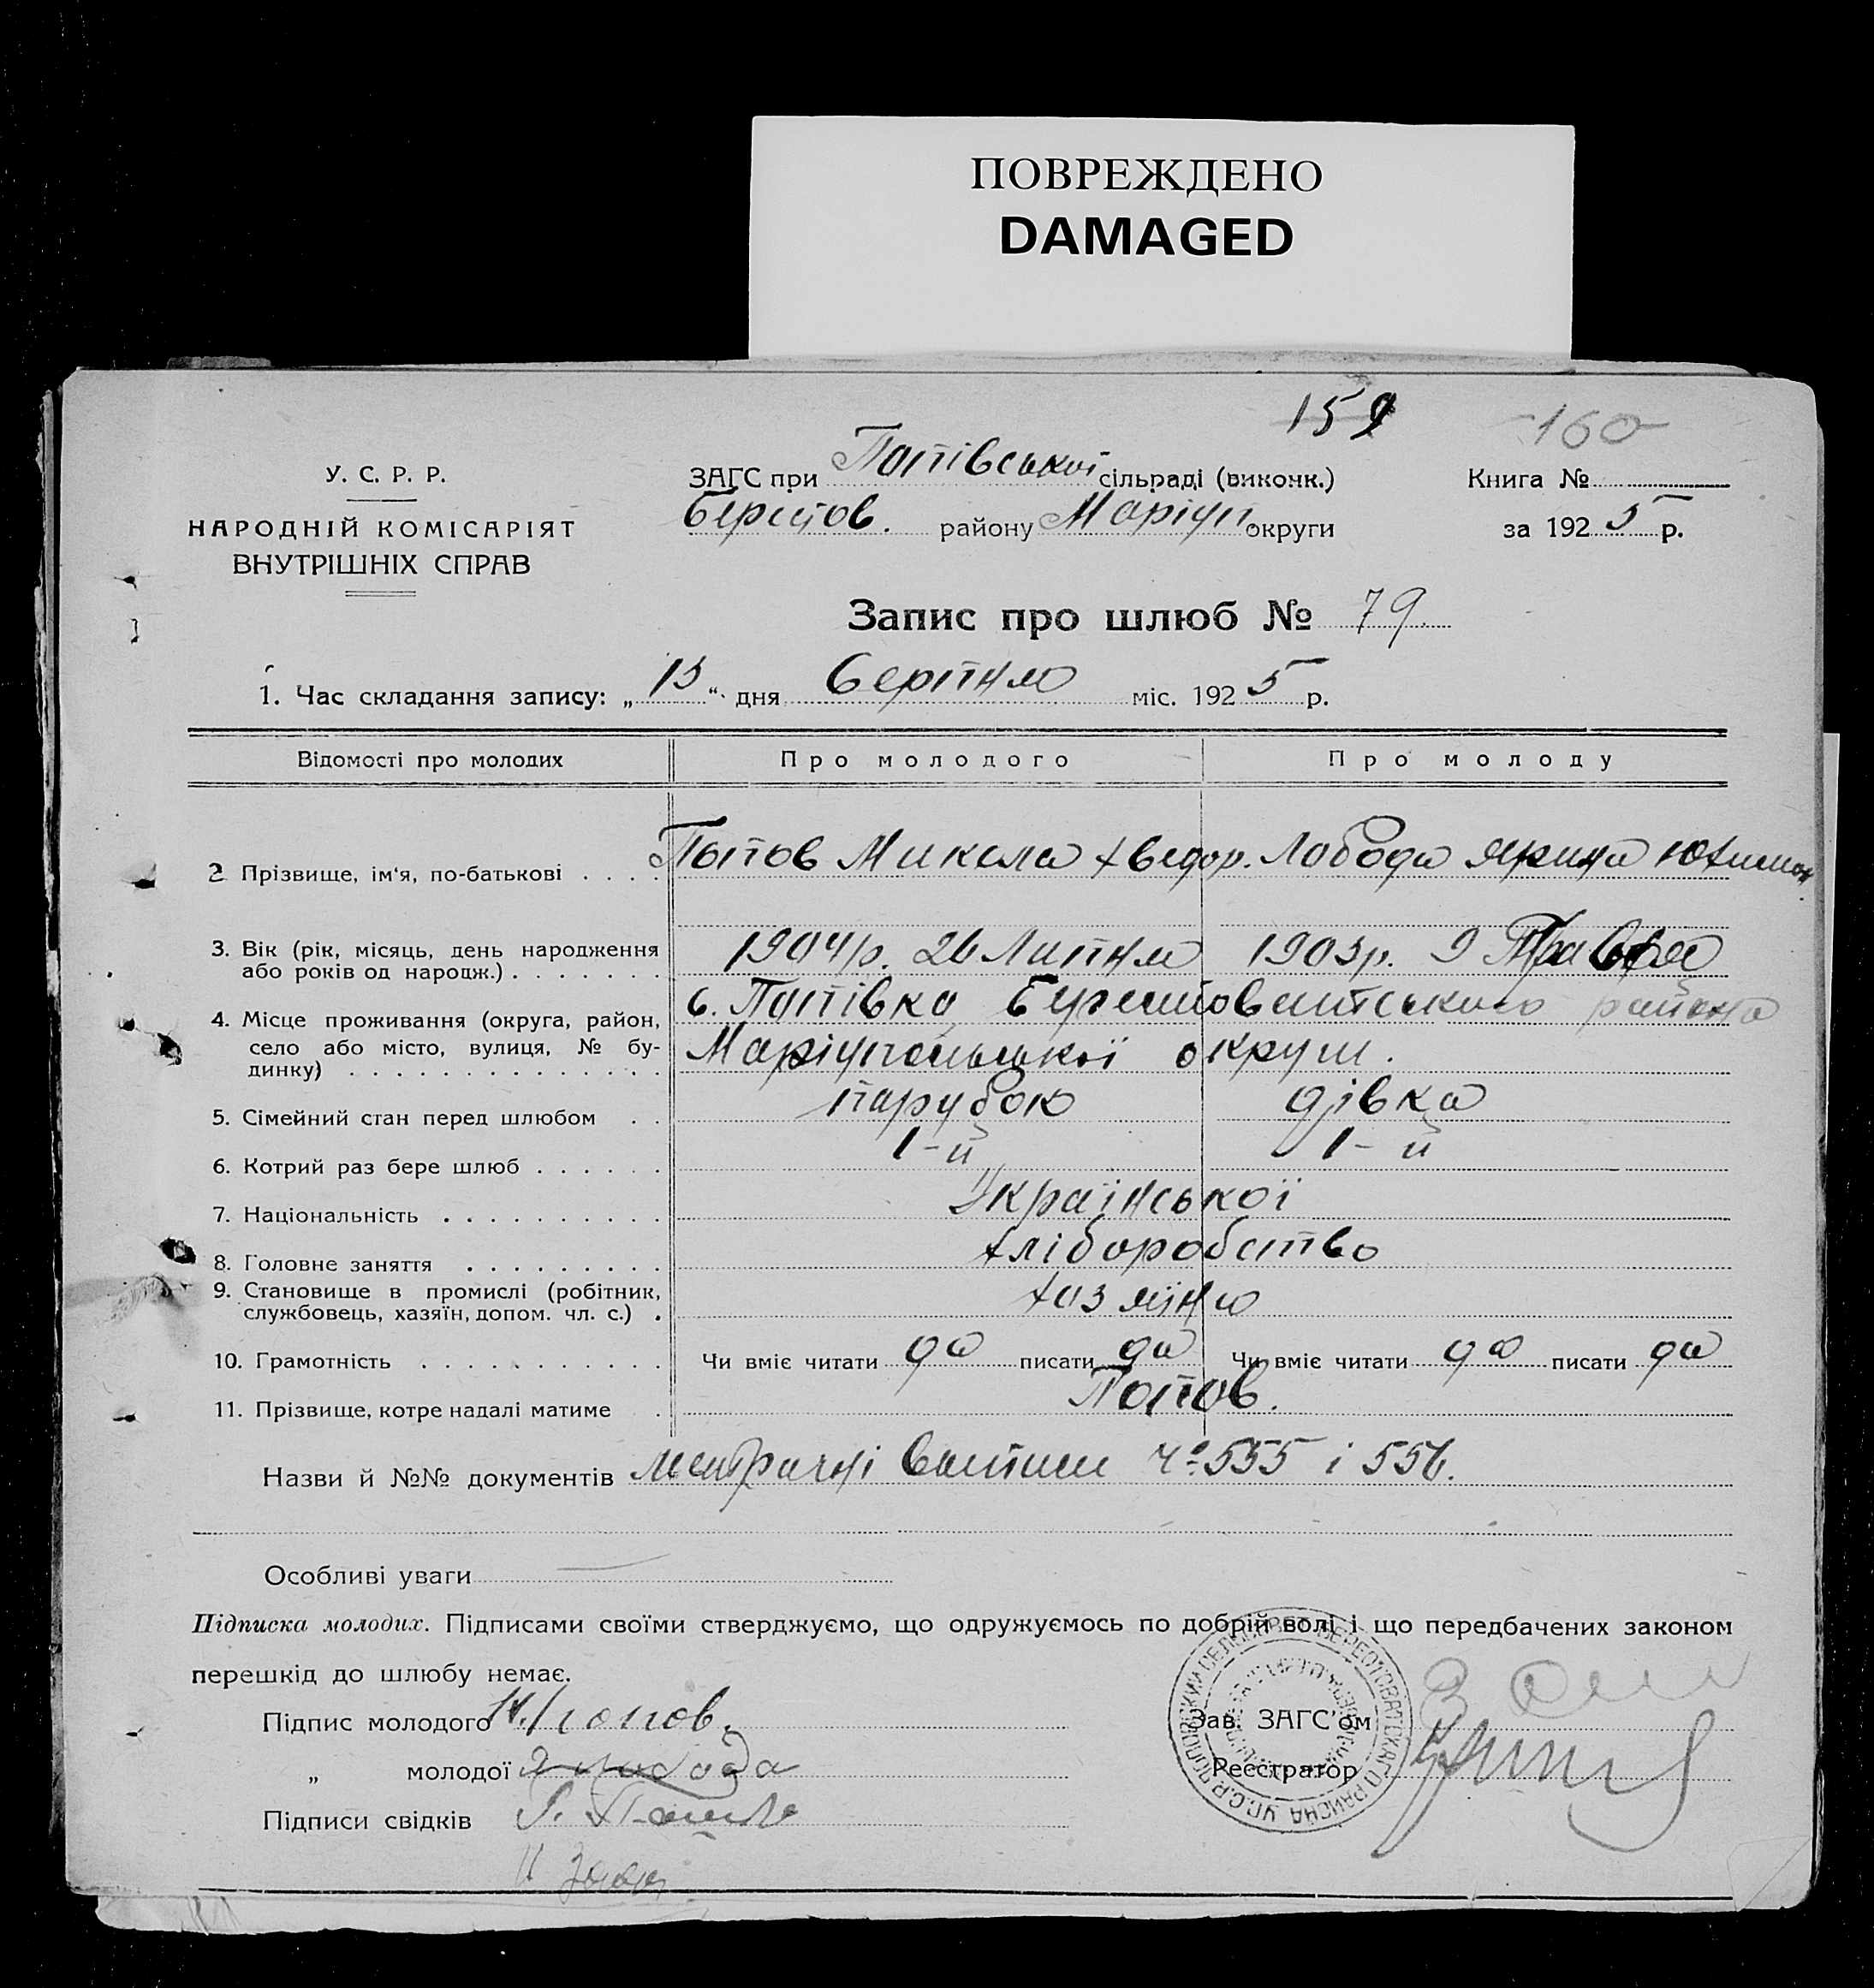 ПОВРЕЖДЕНО
DAMAGED
159
160
У. С. Р. Р.
НАРОДНІЙ КОМІСАРІЯТ
ВНУТРІШНІХ СПРАВ
ЗАГС при Попівської сільраді (виконк.)
Берестов. району Маріуп округи
Книга №
за 1925 р.
Запис про шлюб № 79.
1. Час складання запису: „13“ дня Серпня міс. 1925 р.
Відомості про молодих Про молодого Про молоду
2 Прізвище, ім'я, по-батькові . . . . Попов Микола Хведор. Лобода Ярина Юхимов
3. Вік (рік, місяць, день народження
або років од народж.) . . . . . . . 1904р. 26 Липня 1903р. 9 Травня
4. Місце проживання (округа, район,
село або місто, вулиця, № бу-
динку) . . . . . . . . . . . . . .
с. Попівка Берестоватського района
Маріупольської округи.
5. Сімейний стан перед шлюбом . . парубок дівка
6. Котрий раз бере шлюб . . . . . . 1-й 1-й
7. Національність . . . . . . . . . . Української
8. Головне заняття . . . . . . . . . хліборобство
9. Становище в промислі (робітник,
службовець, хазяїн, допом. чл. с.) . хазяїна
10. Грамотність . . . . . . . . . . . Чи вміє читати да писати да Чи вміє читати да писати да
11. Прізвище, котре надалі матиме . Попов.
Назви й №№ документів метричні витяги ч° 555 і 556.
Особливі уваги —
Підписка молодих. Підписами своїми стверджуємо, що одружуємось по добрій волі і що передбачених законом
перешкід до шлюбу немає.
Підпис молодого Н. Попов.
„ молодої Я Лобода
Підписи свідків
Зав. ЗАГС'ом
Реєстратор